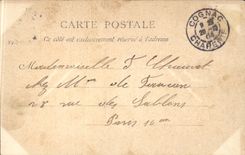 CARTE POSTALE
Ce côté est exclusivement réservé à l'adresse
COGNAC
CHARENTE
Mademoiselle
chez Mme de
28 rue des Sablons
Paris 16e